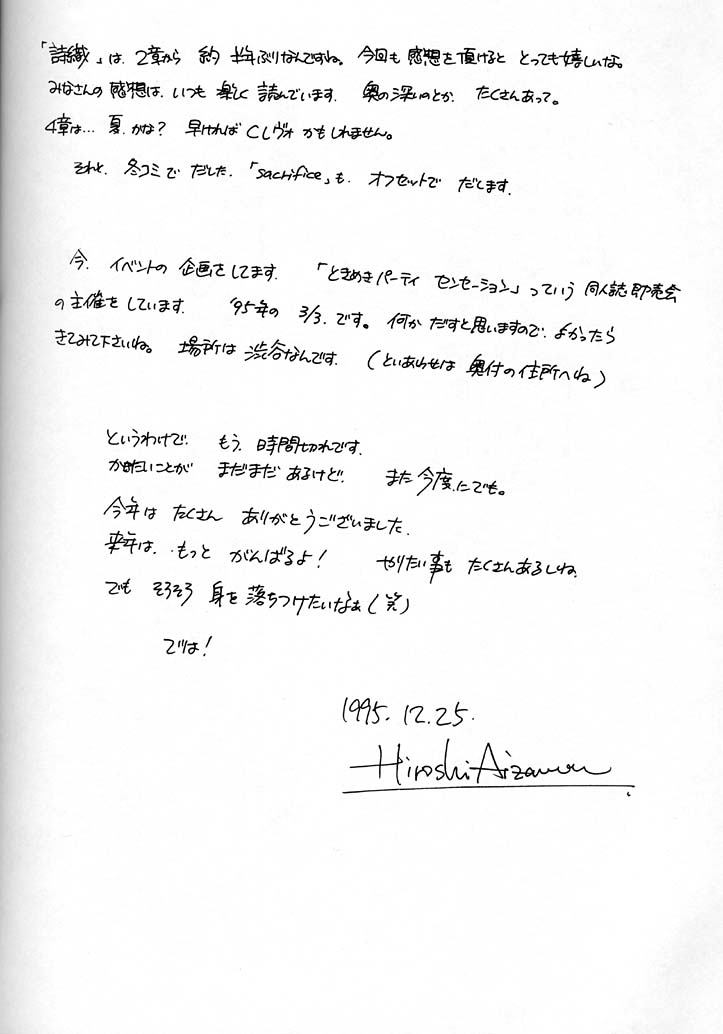 「詩織」は、2章から 約半年ぶりなんですね。今回も 感想を頂けると とっても嬉しいな。
みなさんの 感想は、いつも 楽しく 読んでいます。 奥の深いのとか、たくさんあって。
4章は… 夏、かな? 早ければ Cレヴォ かもしれません。
それと、冬コミで だした、「sacrifice」も、オフセットで だします。
今、イベントの 企画をしてます。 「ときめきパーティ センセーション」っていう 同人誌即売会
の主催をしています。 '95年の 3/3、です。何か だすと思いますので、よかったら
きてみて下さいね。 場所は 渋谷なんです。 (といあわせは 奥付の住所へね)
というわけで、 もう、時間切れです。
かきたいことが まだまだ あるけど、 また 今度、にでも。
今年は たくさん ありがとうございました。
来年は、もっと がんばるよ! やりたい事も たくさんあるしね。
でも そろそろ 身を 落ちつけたいなぁ(笑)
では!
1995.12.25.
Hiroshi Aizawa